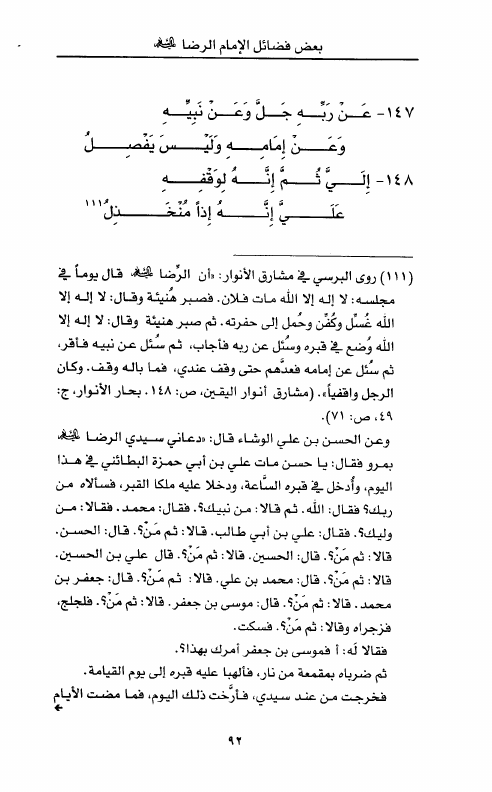 بعض فضائل الإمام الرضا
١٤٧- عَـنْ رَبِّـهِ جَـلَّ وَعَـنْ نَبِيِّـهِ
وَعَـنْ إِمَامِـهِ وَلَيْـسَ يَفْصِـلُ
١٤٨- إِلَـيَّ ثُـمَّ إِنَّـهُ لِوَقْفِـهِ
عَلَـيَّ إِنَّـهُ إِذاً مُنْخَـذِلُ١١١
(١١١) روى البرسي في مشارق الأنوار: «أن الرِّضا قال يوماً في
مجلسه: لا إله إلا الله مات فلان. فصبر هُنيئة وقال: لا إله إلا
الله غُسِّل وكُفِّن وحُمل إلى حفرته. ثم صبر هنيئة وقال: لا إله إلا
الله وُضع في قبره وسُئل عن ربه فأجاب، ثم سُئل عن نبيه فأقر،
ثم سُئل عن إمامه فعدَّهم حتى وقف عندي، فما باله وقف. وكان
الرجل واقفياً». (مشارق أنوار اليقين، ص: ١٤٨. بحار الأنوار، ج:
٤٩، ص: ٧١).
وعن الحسن بن علي الوشاء قال: «دعاني سيدي الرضا
بمرو فقال: يا حسن مات علي بن أبي حمزة البطائني في هذا
اليوم، وأُدخل في قبره السَّاعة، ودخلا عليه ملكا القبر، فسألاه من
ربك؟ فقال: الله. ثم قالا: من نبيك؟. فقال: محمد. فقالا: من
وليك؟. فقال: علي بن أبي طالب. قالا: ثم مَنْ؟. قال: الحسن.
قالا: ثم مَنْ؟. قال: الحسين. قالا: ثم مَنْ؟. قال علي بن الحسين.
قالا: ثم مَنْ؟. قال: محمد بن علي. قالا: ثم مَنْ؟. قال: جعفر بن
محمد. قالا: ثم مَنْ؟. قال: موسى بن جعفر. قالا: ثم مَنْ؟. فلجلج،
فزجراه وقالا: ثم مَنْ؟. فسكت.
فقالا لَه: أ فموسى بن جعفر أمرك بهذا؟.
ثم ضرباه بمقمعة من نار، فألهبا عليه قبره إلى يوم القيامة.
فخرجت من عند سيدي، فأرَّخت ذلك اليوم، فما مضت الأيام
←
٩٢